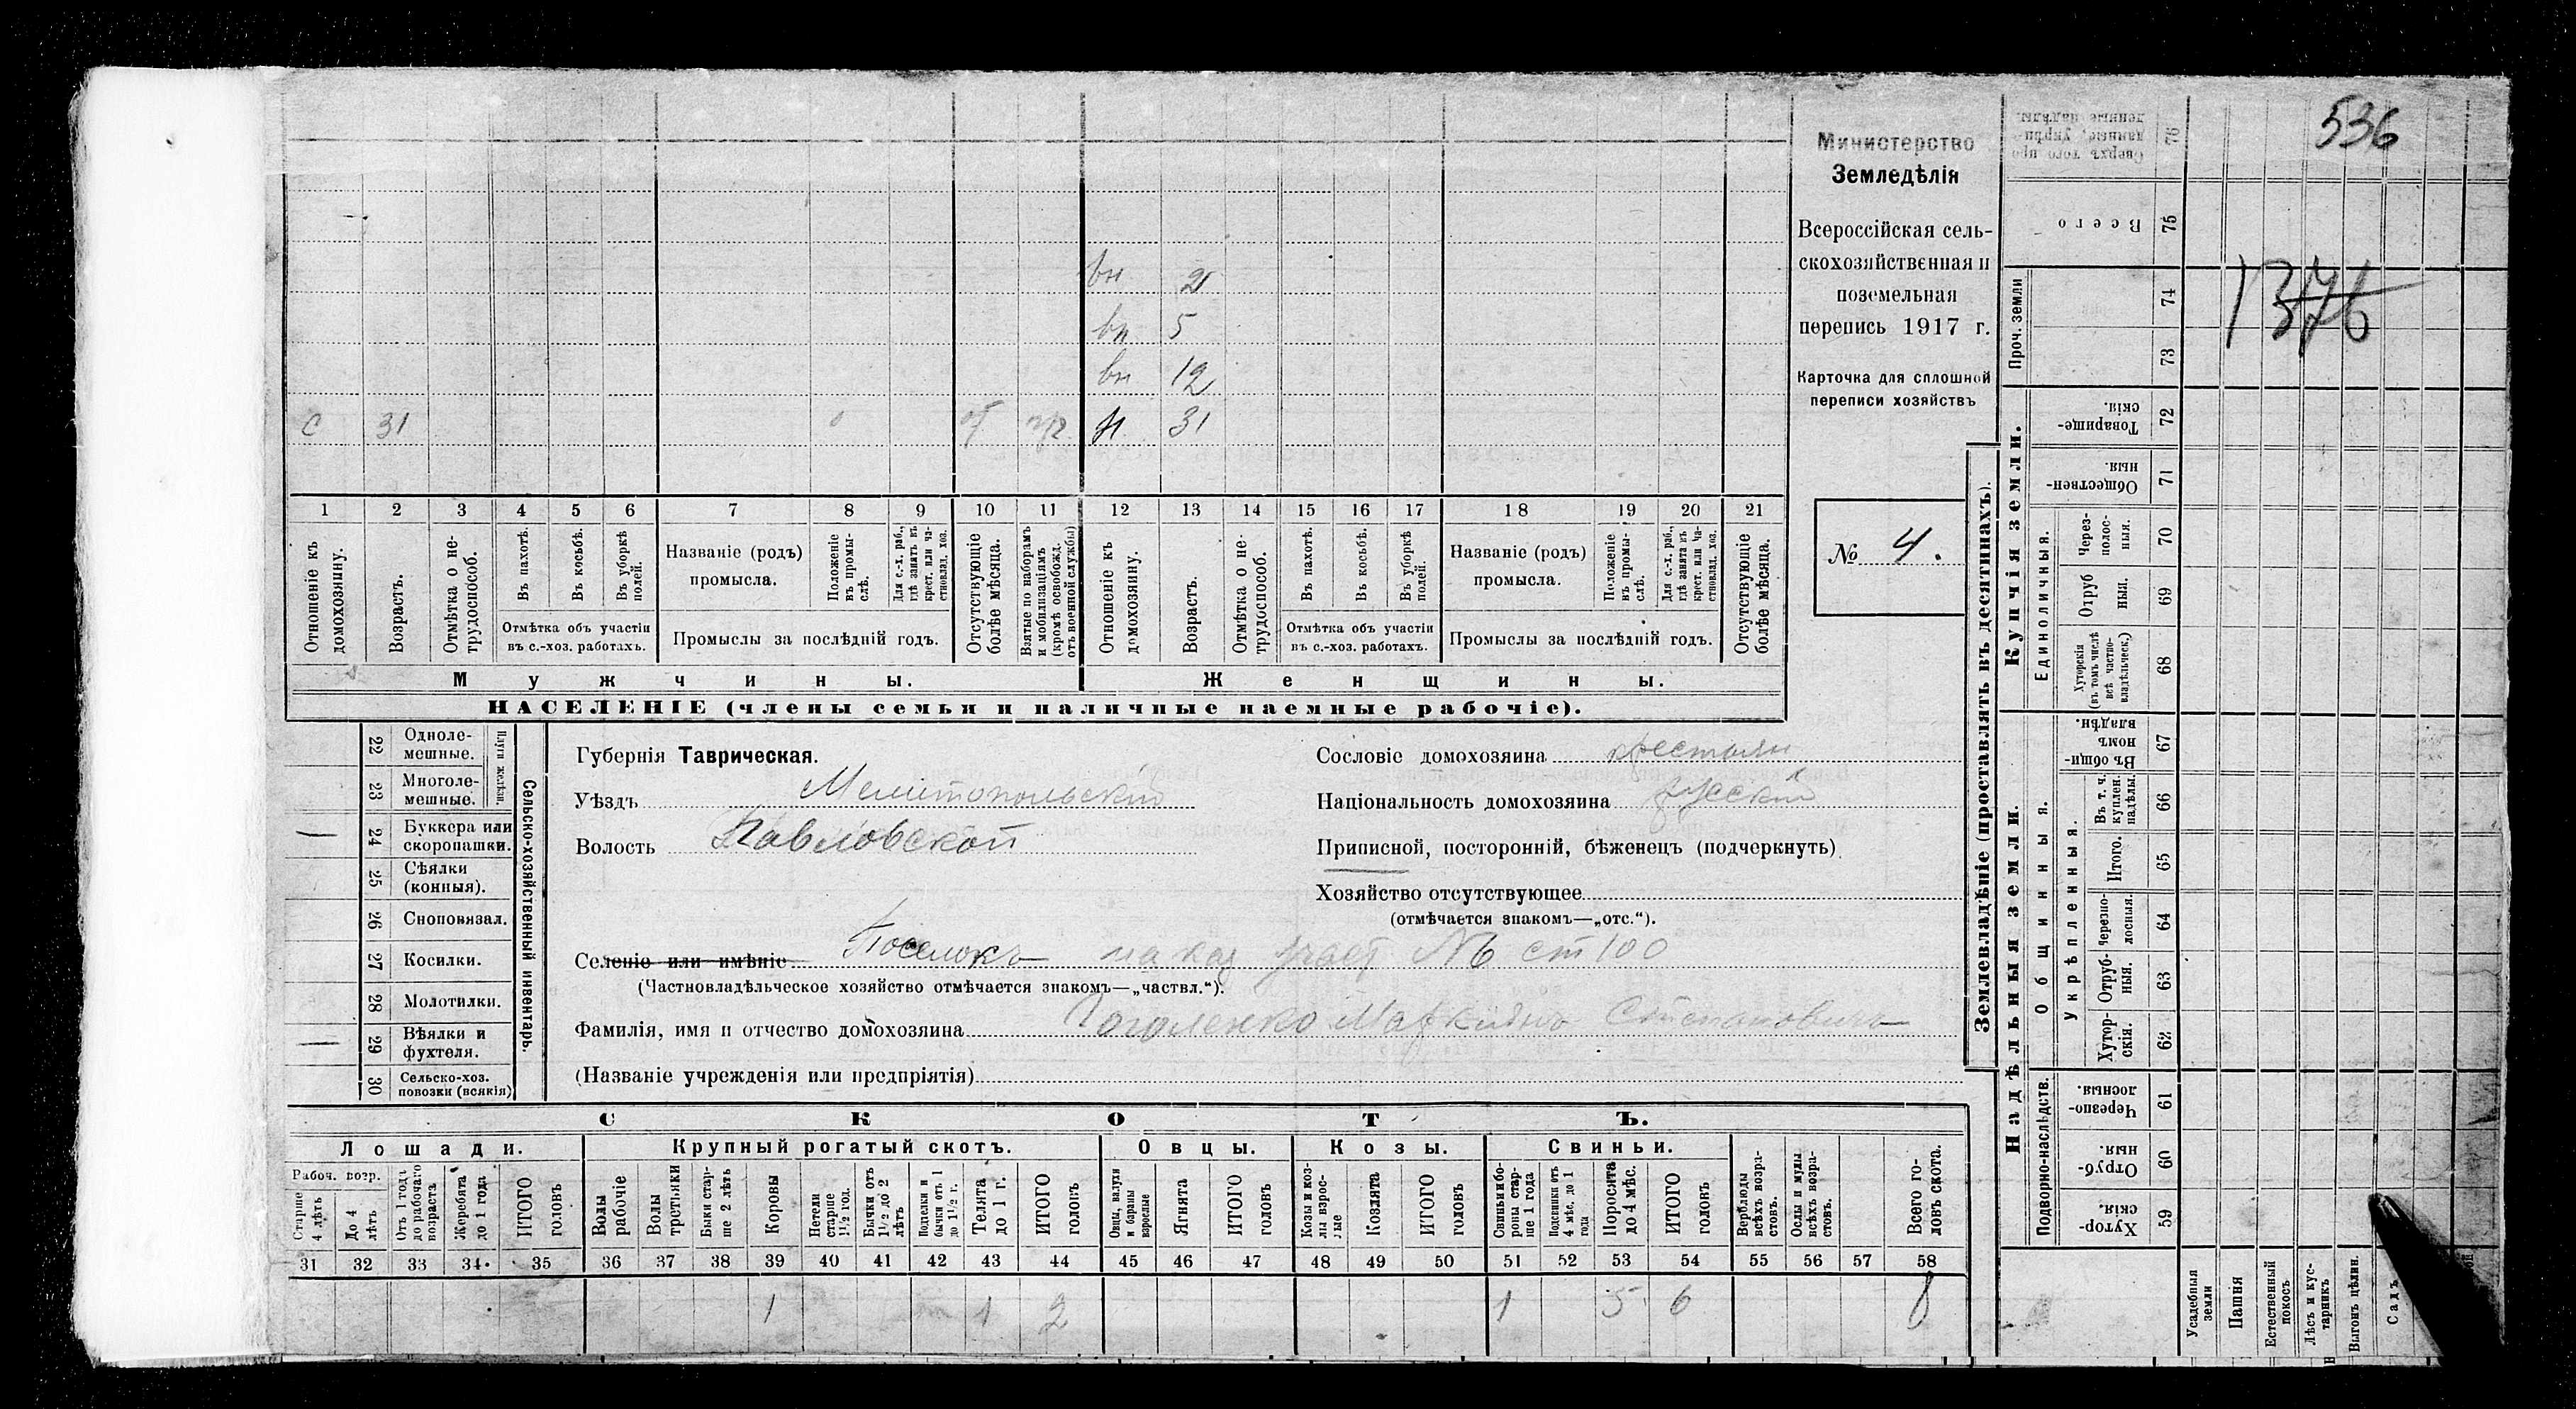 536
1376
Министерство
Земледѣлія
Всероссійская сель-
скохозяйственная и
поземельная
перепись 1917 г.
Карточка для сплошной
переписи хозяйствъ
№ 4.
вн 2
вн 5
вн 12
С 31 31
1 2 3 4 5 6 7 8 9 10 11 12 13 14 15 16 17 18 19 20 21
Отношеніе къ домохозяину.
Возрастъ.
Отмѣтка о не-трудоспособ.
Въ пахотѣ.
Въ косьбѣ.
Въ уборкѣ полей.
Отмѣтка объ участіи
въ с.-хоз. работахъ.
Названіе (родъ)
промысла.
Положеніе въ промы-слѣ.
Для с.-х. раб., гдѣ занятъ въ крест. или ча-стновлад. хоз.
Промыслы за послѣдній годъ.
Отсутствующіе болѣе мѣсяца.
Взятые по наборамъ и мобилизаціямъ (кромѣ освобожд. отъ военной службы)
Отношеніе къ домохозяину.
Возрастъ.
Отмѣтка о не-трудоспособ.
Въ пахотѣ.
Въ косьбѣ.
Въ уборкѣ полей.
Отмѣтка объ участіи
въ с.-хоз. работахъ.
Названіе (родъ)
промысла.
Положеніе въ промы-слѣ.
Для с.-х. раб., гдѣ занята въ крест. или ча-стновлад. хоз.
Промыслы за послѣдній годъ.
Отсутствующіе болѣе мѣсяца.
Мужчины. Женщины.
НАСЕЛЕНІЕ (члены семьи и наличные наемные рабочіе).
22 Одноле-мешные.
23 Многоле-мешные.
Плуги желѣзн.
24 Буккера или скоропашки.
25 Сѣялки (конныя).
26 Сноповязал.
27 Косилки.
28 Молотилки.
29 Вѣялки и фухтеля.
30 Сельско-хоз. повозки (всякія)
Сельско-хозяйственный инвентарь.
Губернія Таврическая.
Уѣздъ Мелитопольскій
Волость Павловской
Сословіе домохозяина крестьян
Національность домохозяина русскій
Приписной, посторонній, бѣженецъ (подчеркнуть)
Хозяйство отсутствующее
(отмѣчается знакомъ—„отс.“).
Селеніе или имѣніе Поселокъ на каз участ №6 ст 100
(Частновладѣльческое хозяйство отмѣчается знакомъ—„частвл.“).
Фамилія, имя и отчество домохозяина Гоголенко Маркіянъ Степановичъ
(Названіе учрежденія или предпріятія)
СКОТЪ.
Лошади. Крупный рогатый скотъ. Овцы. Козы. Свиньи.
Рабоч. возр.
Старше 4 лѣтъ
До 4 лѣтъ
Отъ 1 года до рабочаго возраста
Жеребята до 1 года
ИТОГО головъ
Волы рабочіе
Волы третьяки
Быки стар-ше 2 лѣтъ
Коровы
Нетели старше 1 1/2 год.
Бычки отъ 1 1/2 до 2 лѣтъ
Подтелки и бычки отъ 1 до 1 1/2 г.
Телята до 1 г.
ИТОГО головъ
Овцы, валухи и бараны взрослые
Ягнята
ИТОГО головъ
Козы и коз-лы взрос-лые
Козлята
ИТОГО головъ
Свиньи и бо-ровы стар-ше 1 года
Подсвинки отъ 4 мѣс. до 1 года
Поросята до 4 мѣс.
ИТОГО головъ
Верблюды всѣхъ возра-стовъ.
Ослы и мулы всѣхъ возра-стовъ.
Всего го-ловъ скота.
31 32 33 34 35 36 37 38 39 40 41 42 43 44 45 46 47 48 49 50 51 52 53 54 55 56 57 58
1 1 2 1 5 6 8
Землевладѣніе (проставлять въ десятинахъ).
Надѣльныя земли. Купчія земли.
Проч. земли
Подворно-наслѣдств.
Общинныя.
Укрѣпленныя.
Единоличныя.
Сверхъ того про-данные, укрѣп-ленные надѣлы. 76
Всего 75
74
73
Товарище-скія. 72
Обществен-ныя. 71
Через-полос-ныя. 70
Отруб-ныя. 69
Хуторскія (въ томъ числѣ всѣ частно-владѣльческ.) 68
Въ общи-номъ владѣн. 67
Въ т. ч. куплен. надѣлы. 66
Итого. 65
Черезпо-лосныя. 64
Отруб-ныя. 63
Хутор-скія. 62
Черезпо-лосныя. 61
Отруб-ныя. 60
Хутор-скія. 59
Усадебныя земли
Пашня
Естественный покосъ
Лѣсъ и кус-тарникъ
Выгонъ цѣлин.
Садъ